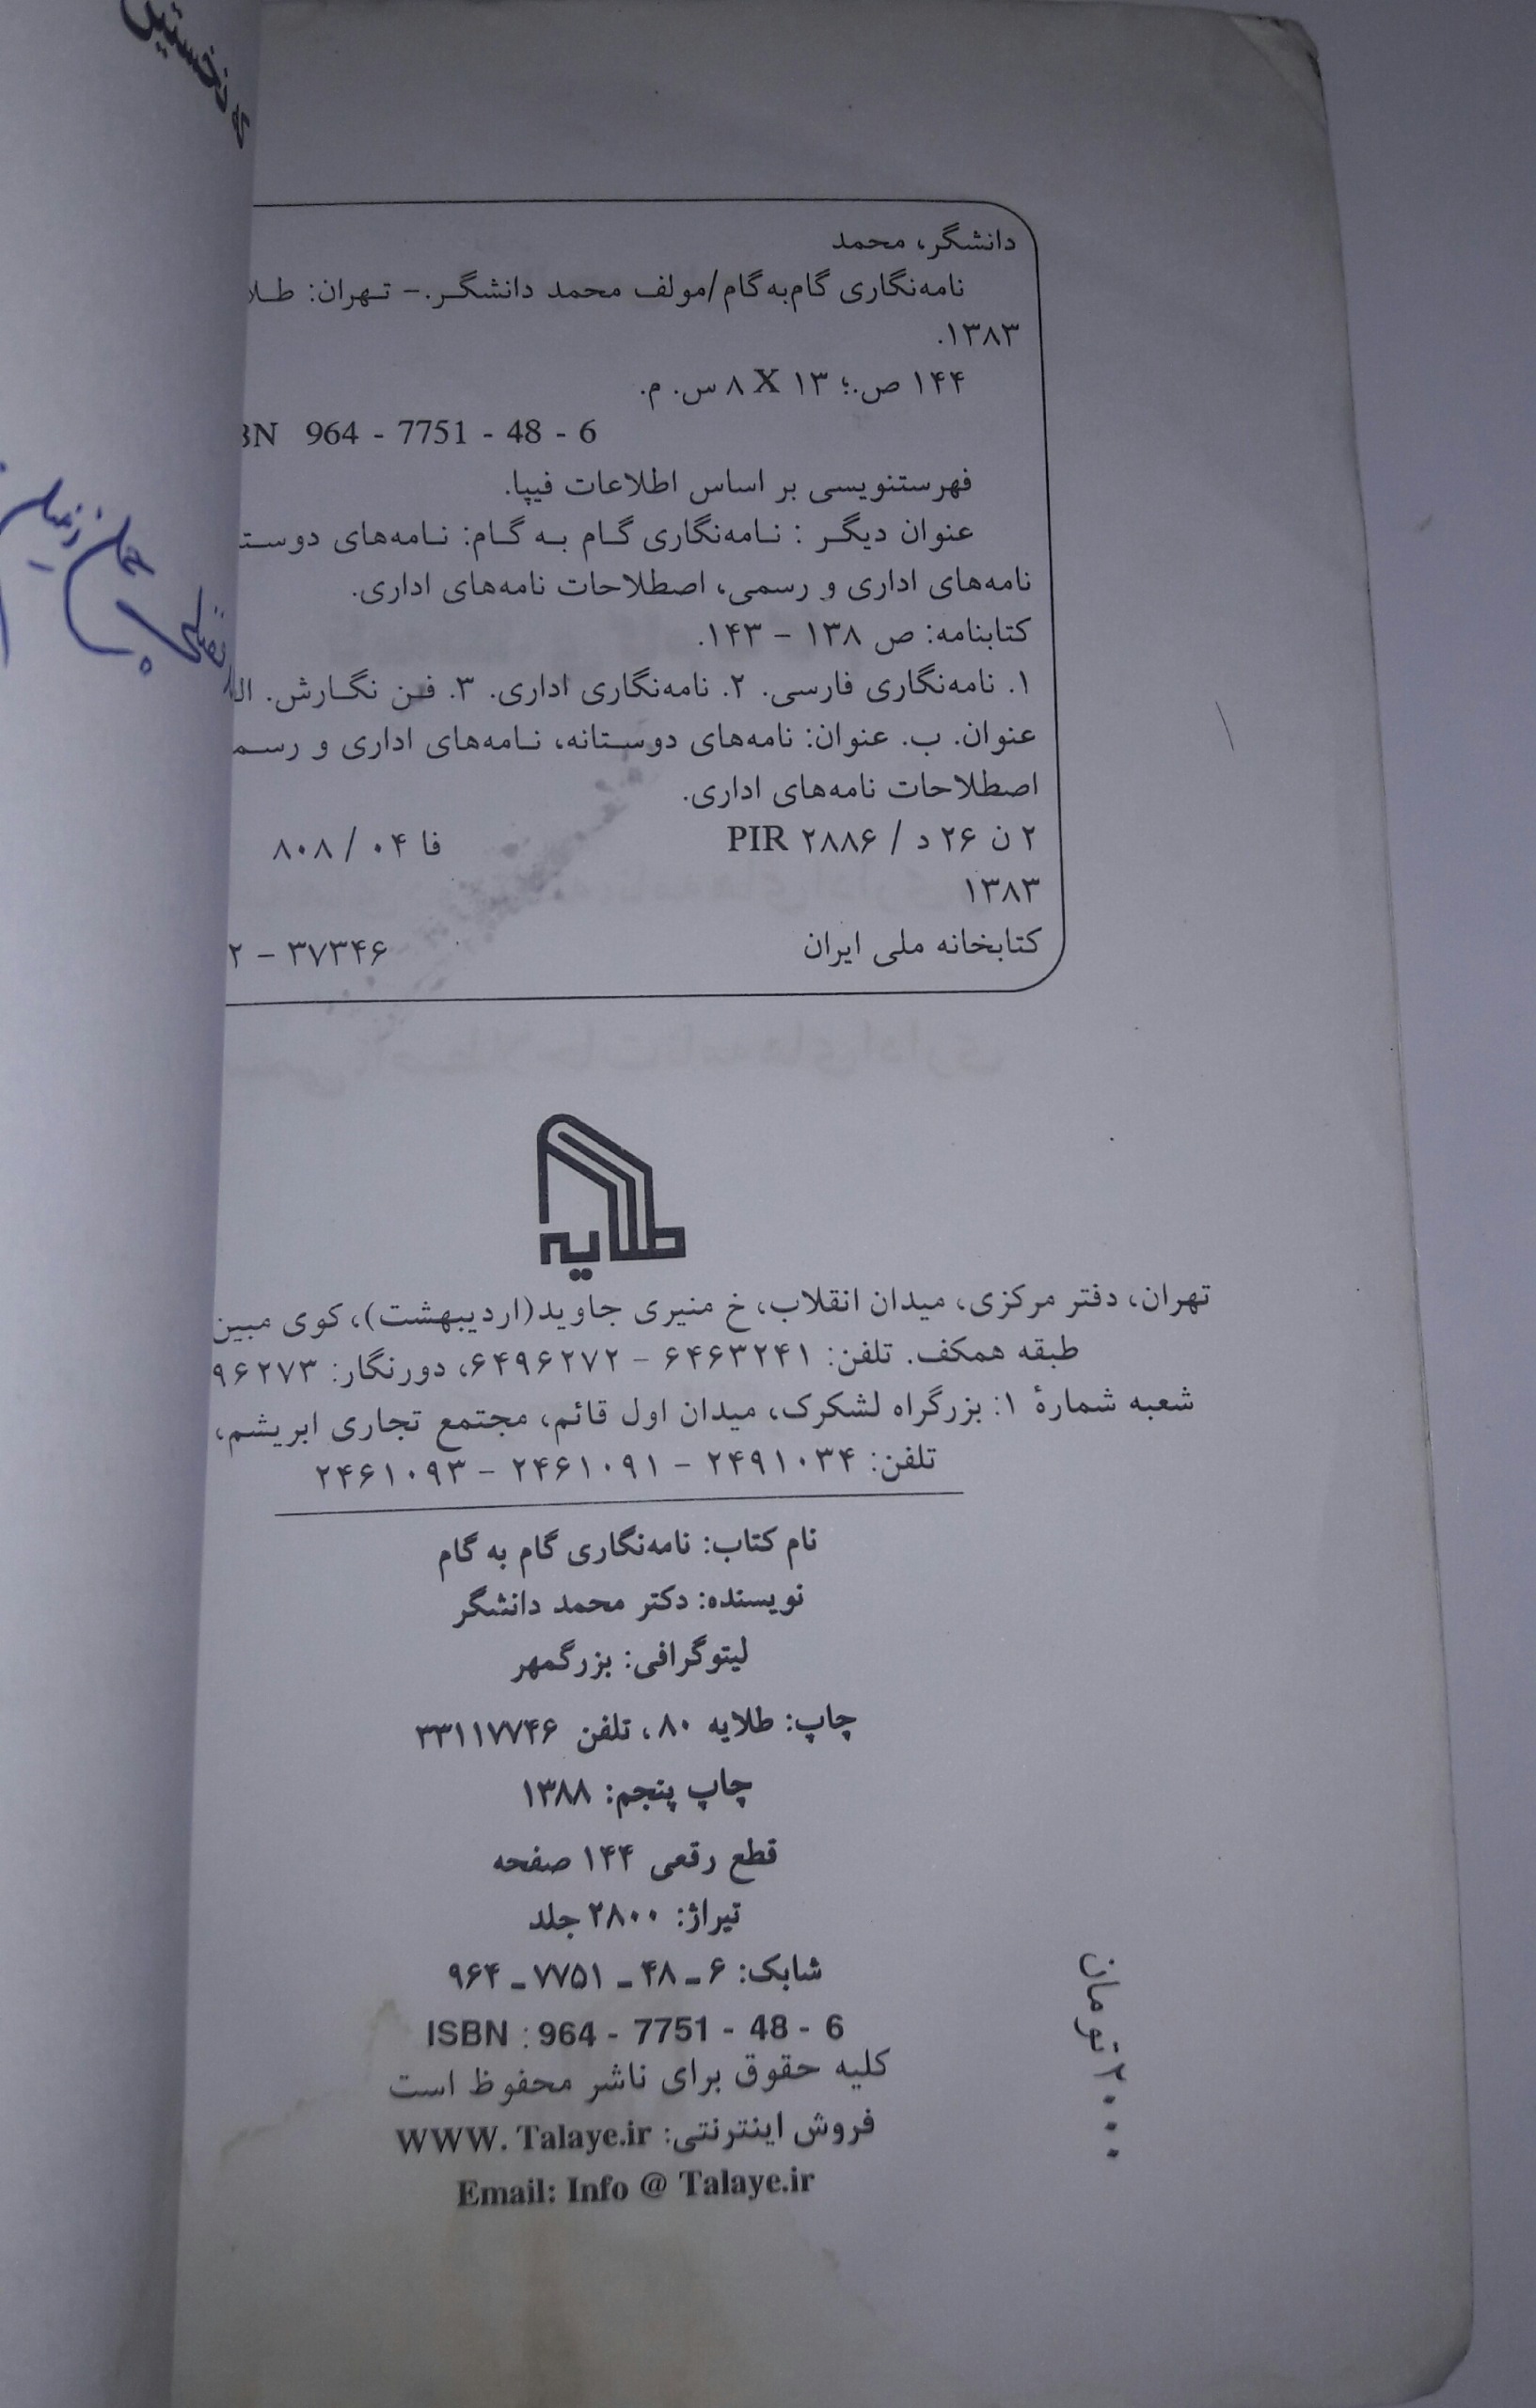 که نخستین
دانشگر، محمد
نامه‌نگاری گام‌به‌گام/مولف محمد دانشگر.- تهران: طلا
۱۳۸۳.
۱۴۴ ص.؛ ۱۳ X ۸ س. م.
BN 964 - 7751 - 48 - 6
فهرستنویسی بر اساس اطلاعات فیپا.
عنوان دیگر : نامه‌نگاری گام به گام: نامه‌های دوست
نامه‌های اداری و رسمی، اصطلاحات نامه‌های اداری.
کتابنامه: ص ۱۳۸ - ۱۴۳.
۱. نامه‌نگاری فارسی. ۲. نامه‌نگاری اداری. ۳. فن نگارش. ال
عنوان. ب. عنوان: نامه‌های دوستانه، نامه‌های اداری و رسم
اصطلاحات نامه‌های اداری.
۲ ن ۲۶ د / ۲۸۸۶ PIR فا ۰۴ / ۸۰۸
۱۳۸۳
کتابخانه ملی ایران ۳۷۳۴۶ - ۲
طلایه
تهران، دفتر مرکزی، میدان انقلاب، خ منیری جاوید(اردیبهشت)، کوی مبین
طبقه همکف. تلفن: ۶۴۶۳۲۴۱ - ۶۴۹۶۲۷۲، دورنگار: ۹۶۲۷۳
شعبه شمارهٔ ۱: بزرگراه لشکرک، میدان اول قائم، مجتمع تجاری ابریشم،
تلفن: ۲۴۹۱۰۳۴ - ۲۴۶۱۰۹۱ - ۲۴۶۱۰۹۳
نام کتاب: نامه‌نگاری گام به گام
نویسنده: دکتر محمد دانشگر
لیتوگرافی: بزرگمهر
چاپ: طلایه ۸۰، تلفن ۳۳۱۱۷۷۴۶
چاپ پنجم: ۱۳۸۸
قطع رقعی ۱۴۴ صفحه
تیراژ: ۲۸۰۰ جلد
شابک: ۶ - ۴۸ - ۷۷۵۱ - ۹۶۴
ISBN : 964 - 7751 - 48 - 6
کلیه حقوق برای ناشر محفوظ است
فروش اینترنتی: WWW. Talaye.ir
Email: Info @ Talaye.ir
۲۰۰۰ تومان